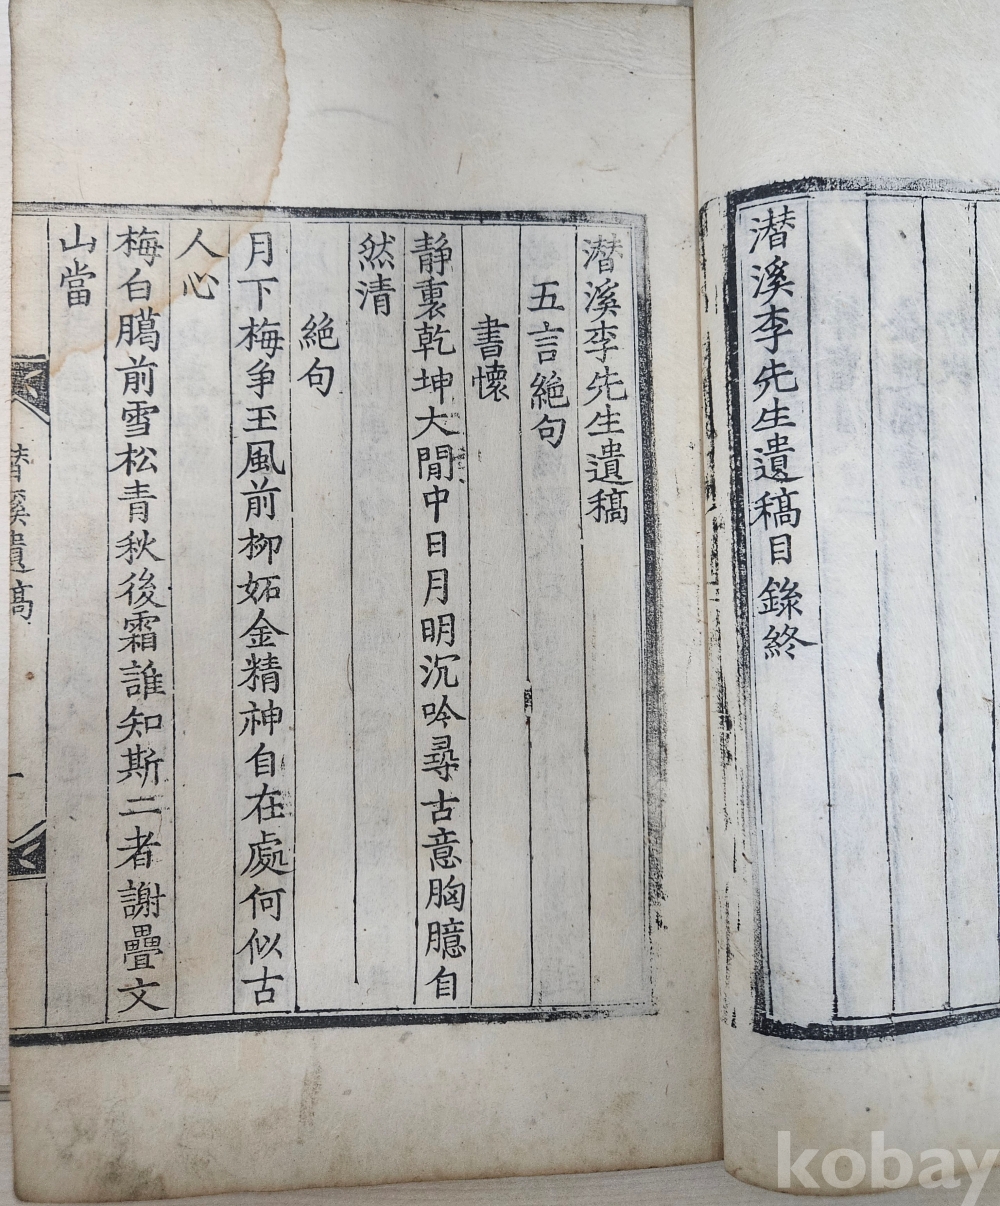 潛溪李先生遺稿目錄終
潛溪李先生遺稿
五言絕句
書懷
静裏乾坤大閒中日月明沉吟尋古意胸臆自
然清
絶句
月下梅争玉風前柳妬金精神自在處何似古
人心
梅白臈前雪松青秋後霜誰知斯二者謝疊文
山當
潛溪遺稿
一
kobay